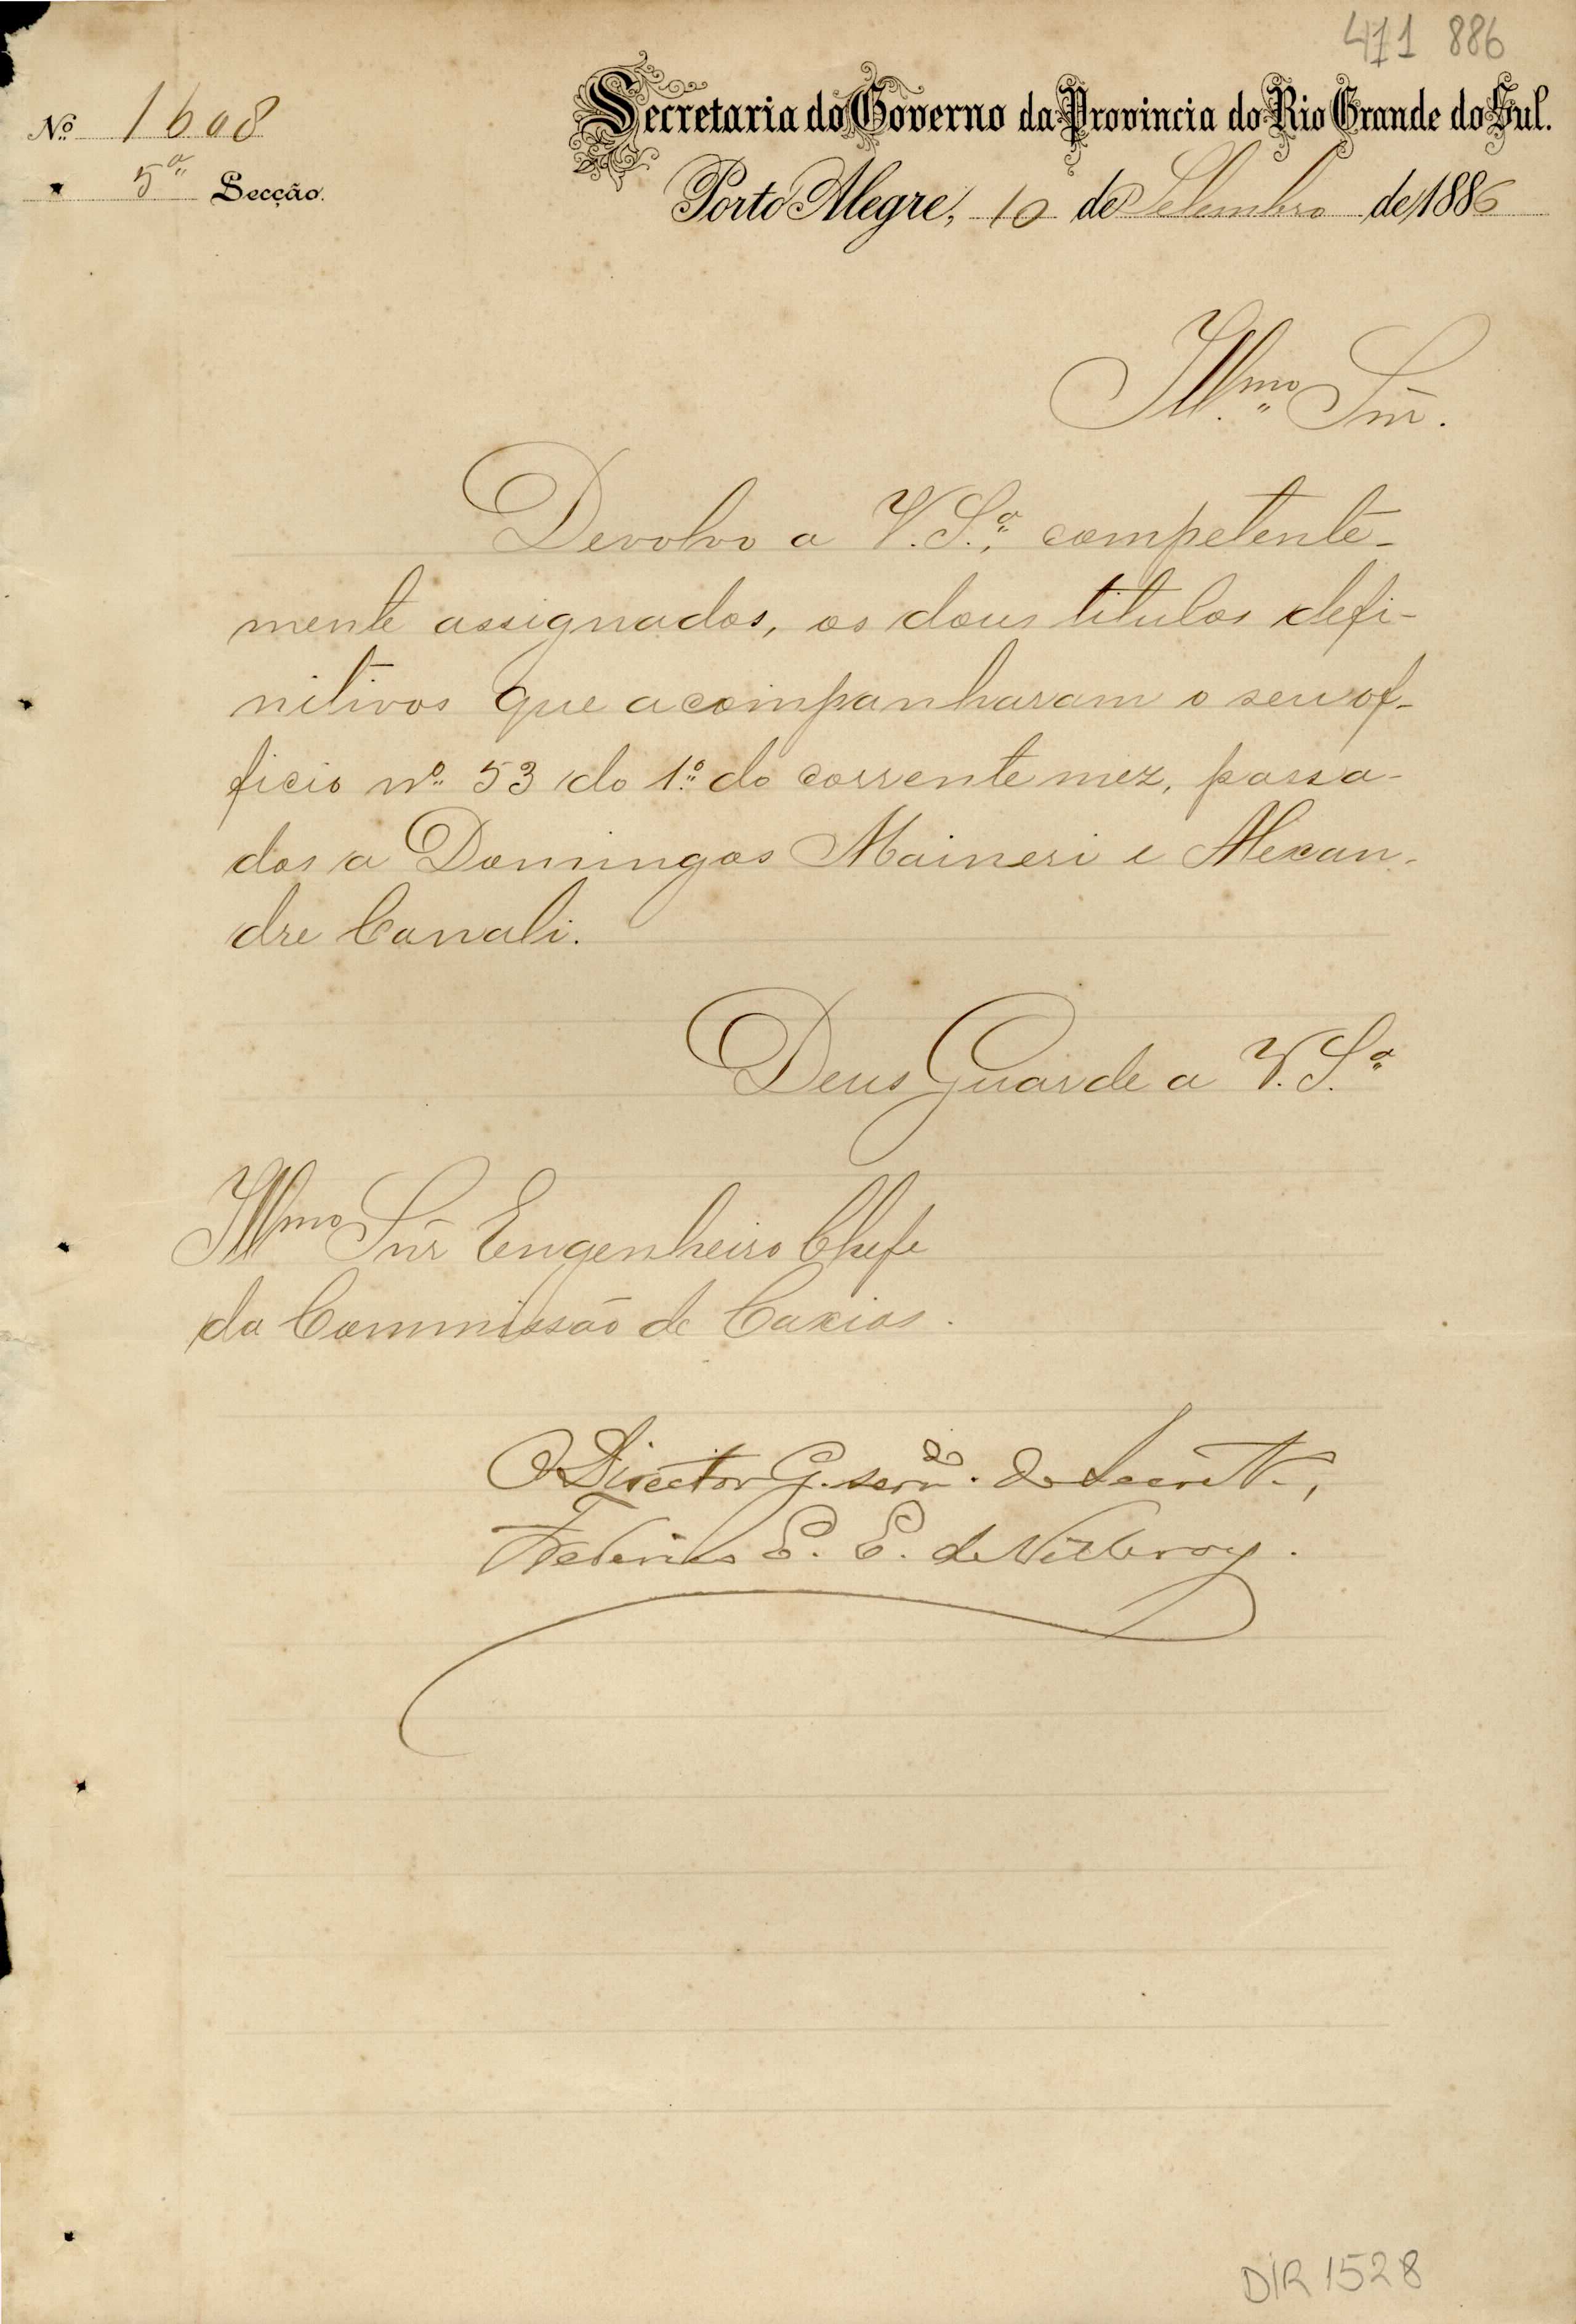 411 886
Nº 1608
5ª Secção.
Secretaria do Governo da Provincia do Rio Grande do Sul.
Porto Alegre, 10 de Setembro de 1886
Illmo Snr.
Devolvo a V. Sª, competente-
mente assignados, os dous titulos defi-
nitivos que acompanharam o seu of-
ficio nº 53 do 1º do corrente mez, passa-
dos a Domingos Maineri e Alexan-
dre Canali.
Deus Guarde a V. Sª
Illmo Snr Engenheiro Chefe
da Commissão de Caxias.
O Director G. servdo. de
E. E. de Villeroy.
DIR 1528